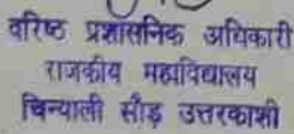 वरिष्ठ प्रशासनिक अधिकारी
राजकीय महाविद्यालय
चिन्याली सौड़ उत्तरकाशी